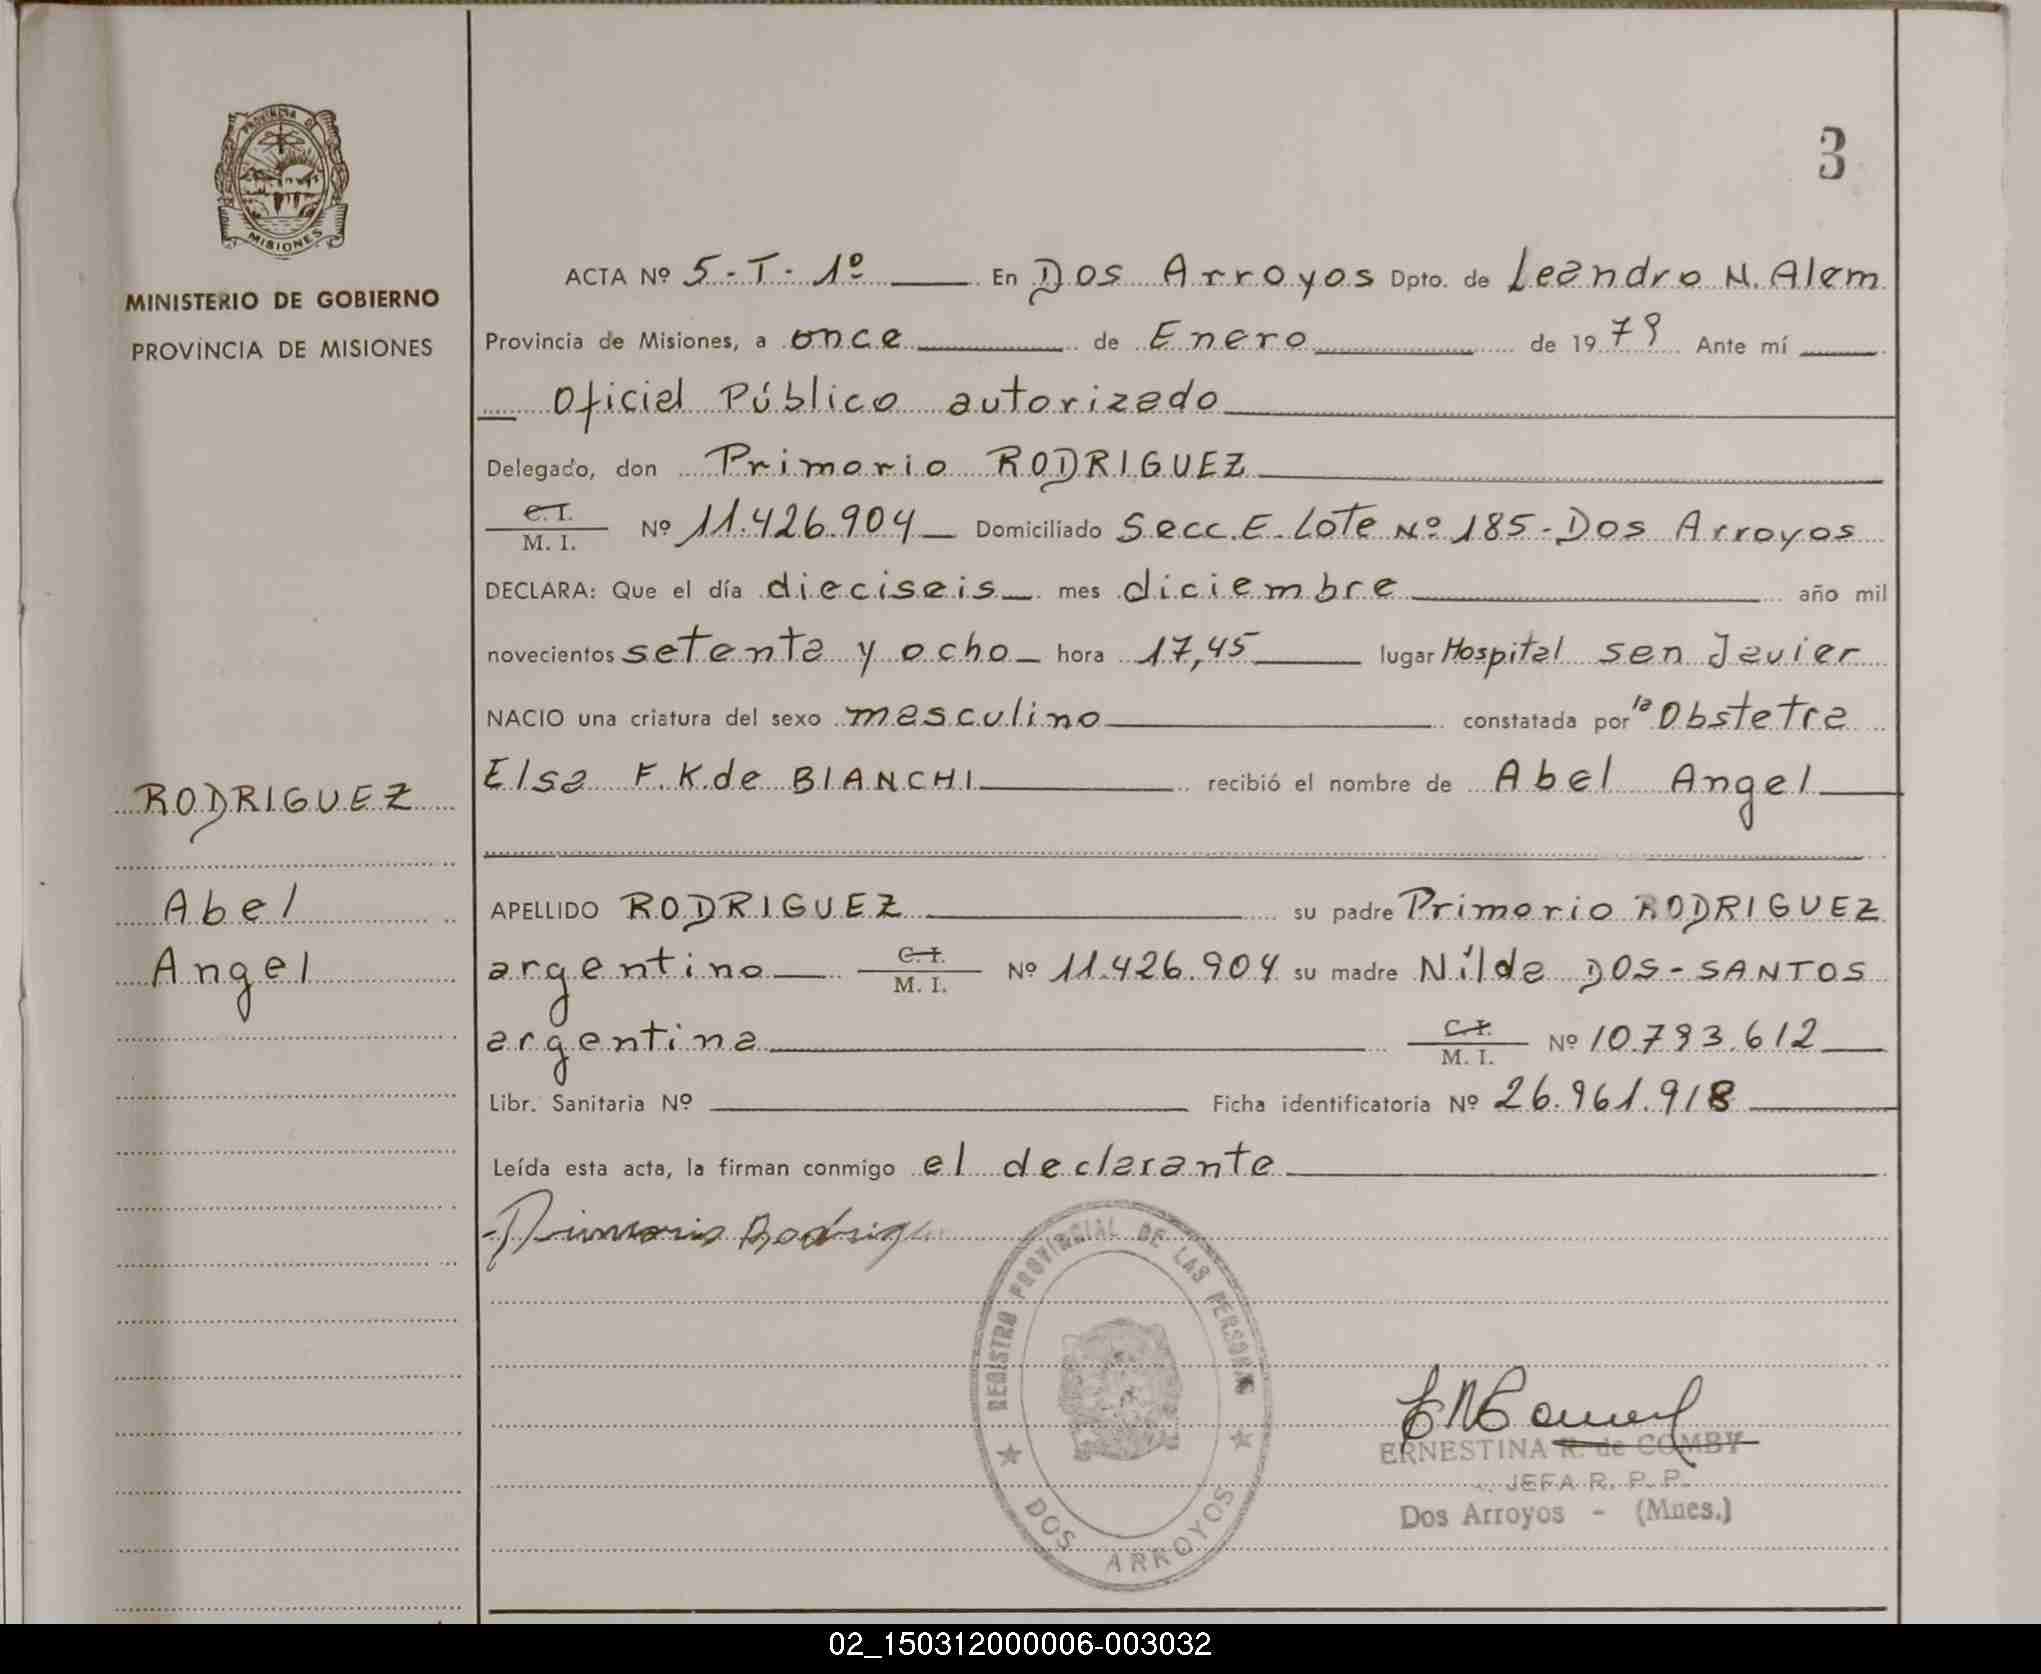 PROVINCIA DE
MISIONES
MINISTERIO DE GOBIERNO
PROVINCIA DE MISIONES
RODRIGUEZ
Abel
Angel
3
ACTA Nº 5-T-1º En Dos Arroyos Dpto. de Leandro N. Alem
Provincia de Misiones, a once de Enero de 1979 Ante mí
Oficial Público autorizado
Delegado, don Primorio RODRIGUEZ
C.I.
M. I. Nº 11.426.904 Domiciliado Secc. E. Lote Nº 185-Dos Arroyos
DECLARA: Que el día dieciseis mes diciembre año mil
novecientos setenta y ocho hora 17,45 lugar Hospital san Javier
NACIO una criatura del sexo masculino constatada por la Obstetra
Elsa F. K. de BIANCHI recibió el nombre de Abel Angel
APELLIDO RODRIGUEZ su padre Primorio RODRIGUEZ
argentino C.I.
M. I. Nº 11.426.904 su madre Nílda DOS-SANTOS
argentina C.I.
M. I. Nº 10.793.612
Libr. Sanitaria Nº Ficha identificatoria Nº 26.961.918
Leída esta acta, la firman conmigo el declarante
Primorio Rodrigu
REGISTRO PROVINCIAL DE LAS PERSONAS
DOS ARROYOS
ERNESTINA R. de COMBY
JEFA R. P. P.
Dos Arroyos - (Mnes.)
02_150312000006-003032